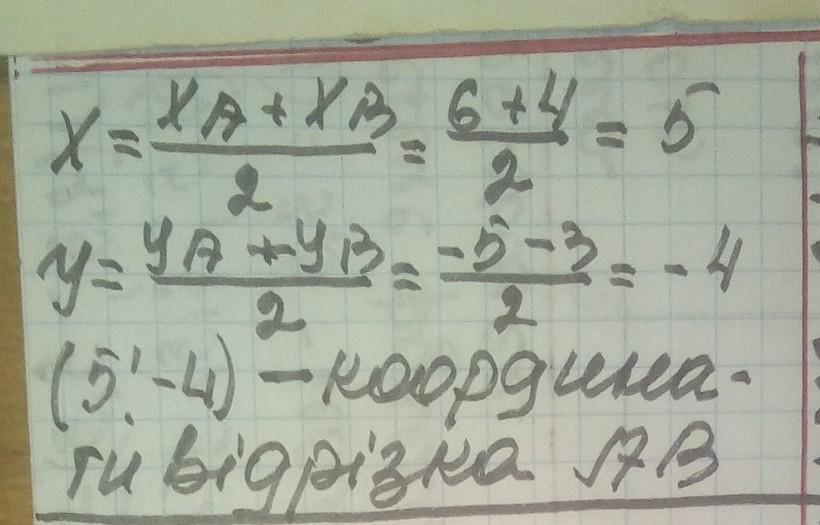 X = (XA + XB)/2 = (6 + 4)/2 = 5
y = (yA + yB)/2 = (-5 - 3)/2 = -4
(5; -4) – координа-
ти відрізка AB